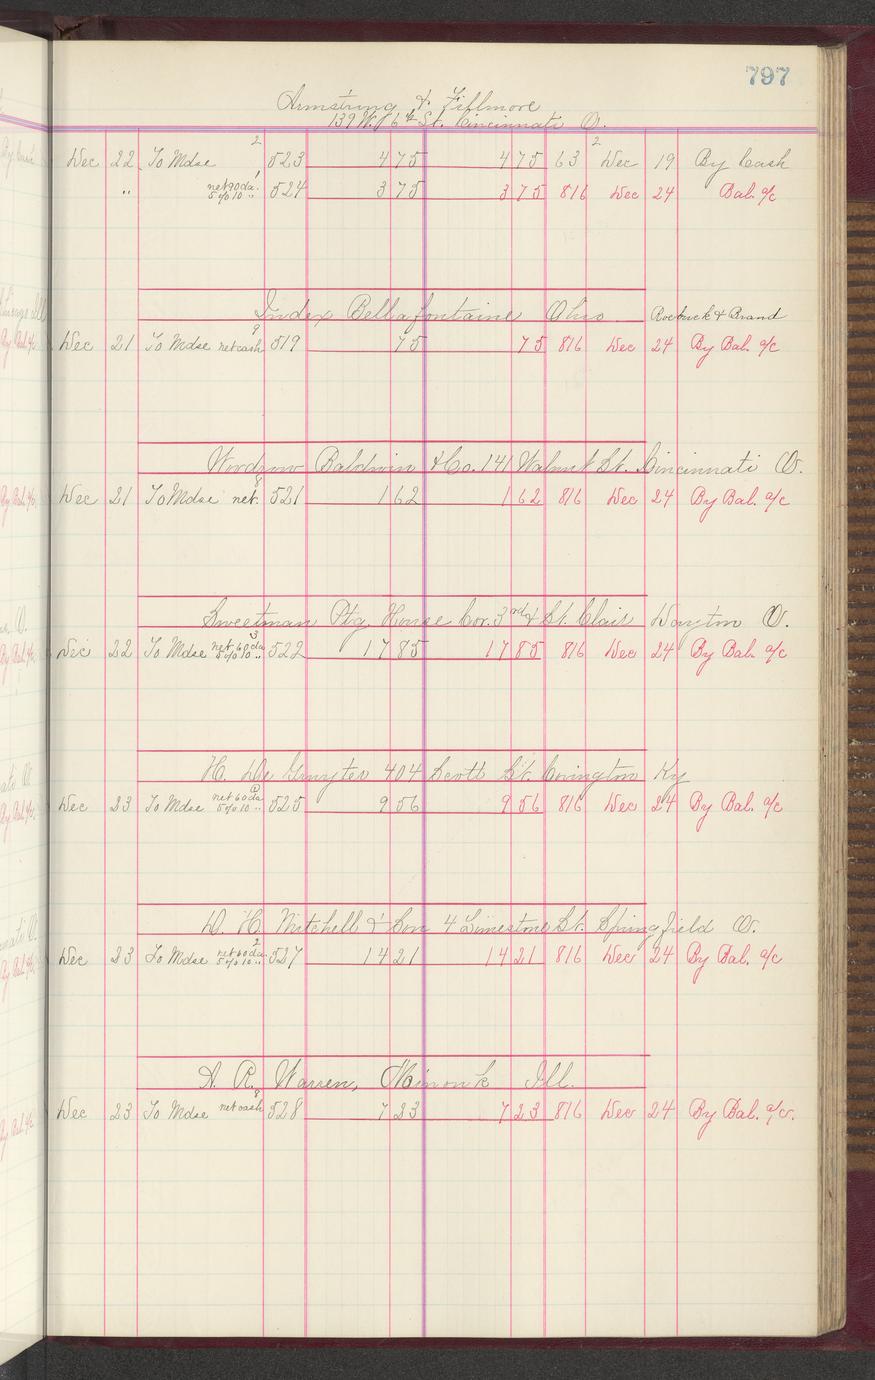 797
Armstrong & Fillmore
139 W. 6th St. Cincinnati O.
Dec 22 To Mdse 2 523 4 75 4 75 63 2 Dec 19 By Cash
" net 90 da. 1 5% 10 " 524 3 75 3 75 816 Dec 24 Bal. a/c
Index Bellafontaine Ohio Roebuck & Brand
Dec 21 To Mdse net cash 9 519 75 75 816 Dec 24 By Bal. a/c
Woodrow Baldwin & Co. 141 Walnut St. Cincinnati O.
Dec 21 To Mdse net. 8 521 1 62 1 62 816 Dec 24 By Bal. a/c
Sweetman Ptg. House Cor. 3rd & St. Clair Dayton O.
Dec 22 To Mdse net 60 da 3 5% 10 " 522 17 85 17 85 816 Dec 24 By Bal. a/c
H. De Gruyter 404 Scott St. Covington Ky
Dec 23 To Mdse net 60 da 5% 10 " 525 9 56 9 56 816 Dec 24 By Bal. a/c
D. H. Mitchell & Son 4 Limestone St. Springfield O.
Dec 23 To Mdse net 60 da. 2 5% 10 " 527 14 21 14 21 816 Dec 24 By Bal. a/c
A. R. Warren, Minonk Ill.
Dec 23 To Mdse net cash 8 528 7 23 7 23 816 Dec 24 By Bal. a/c.